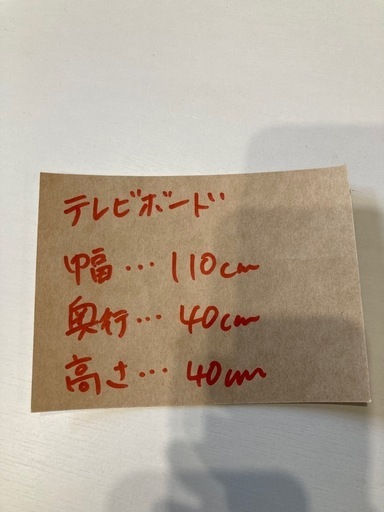 テレビボード
幅… 110cm
奥行… 40cm
高さ… 40cm